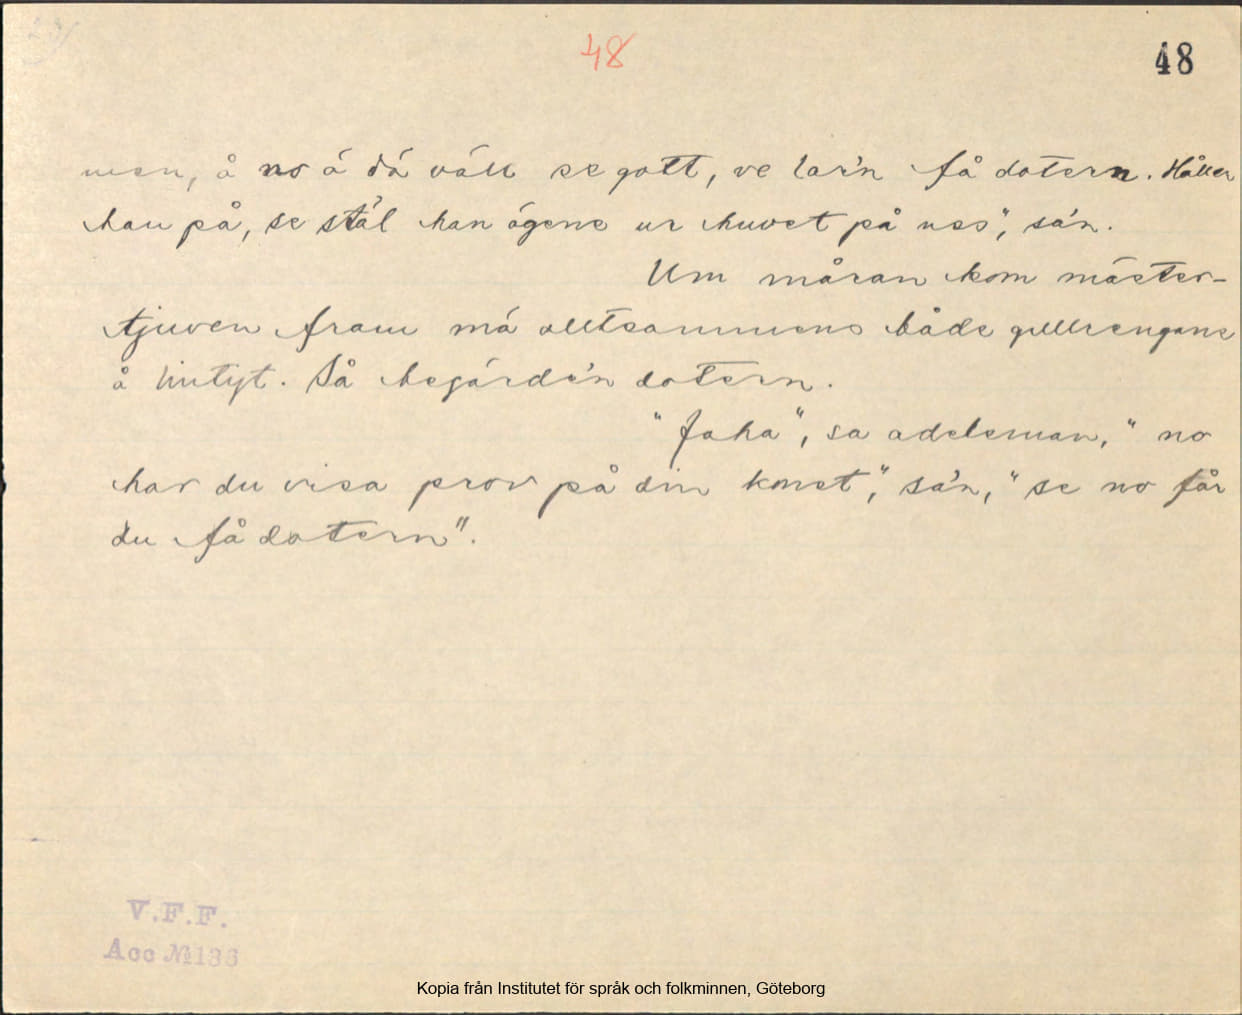 48
48
men, å no á dá váll se gott, ve lar'n få dotern. Håller
han på, se stál han ógene ur huvet på uss", sá'n.
Um måran kom mäster-
tjuven fram má alltsammens både gullrengane
å lintyt. Så begárde'n dotern.
"Jaha", sa adeleman, "no
har du visa prov på din konst", sá'n, "se no får
du få dotern".
V.F.F.
Acc №186
Kopia från Institutet för språk och folkminnen, Göteborg